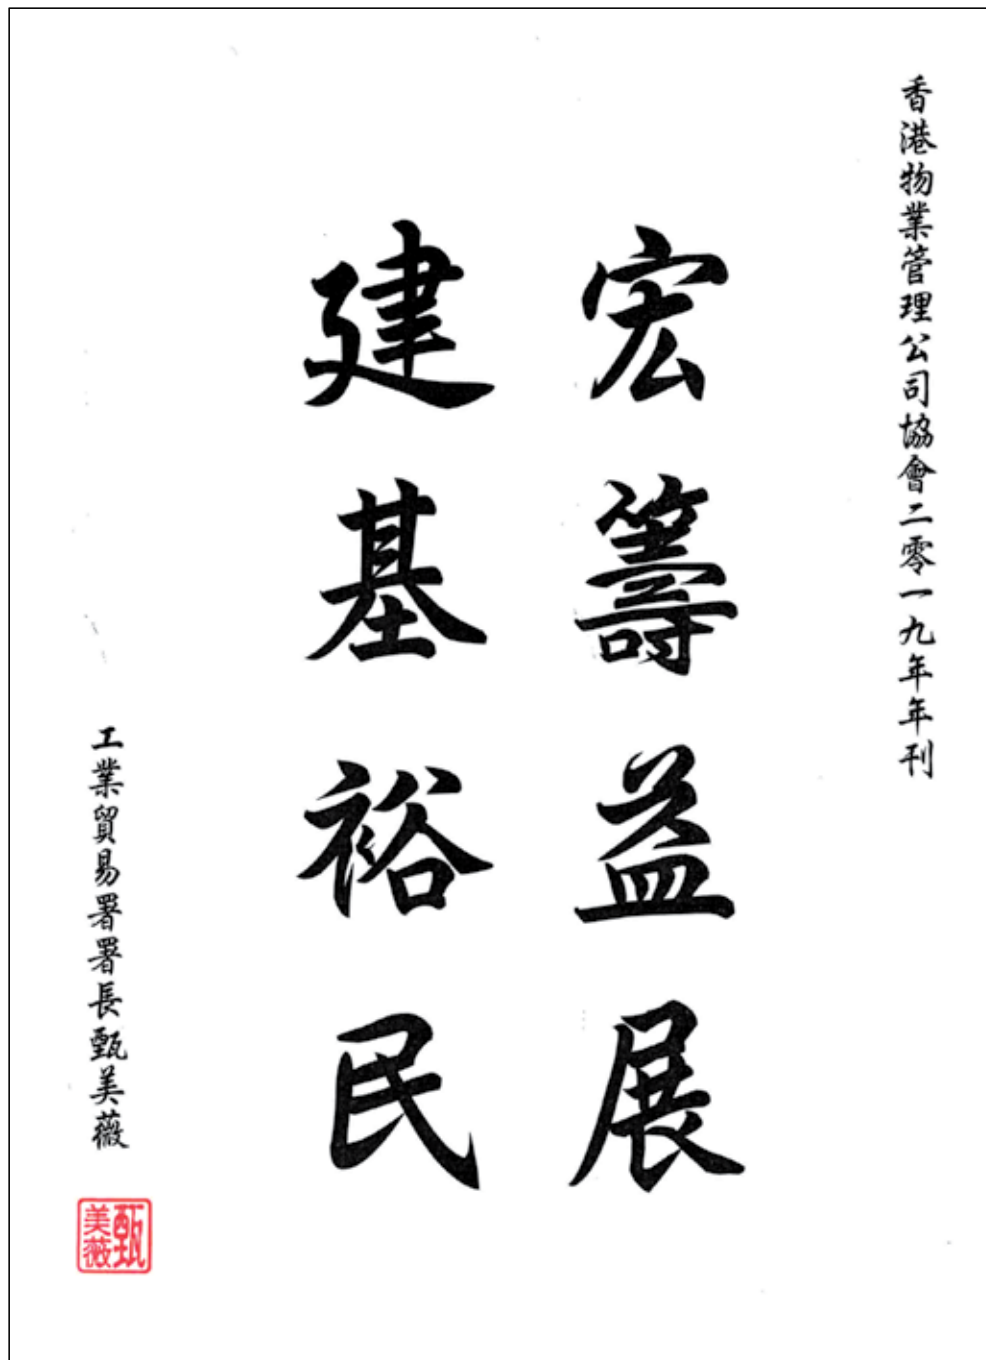 香港物業管理公司協會二零一九年年刊
宏籌益展
建基裕民
工業貿易署署長甄美薇
甄美薇